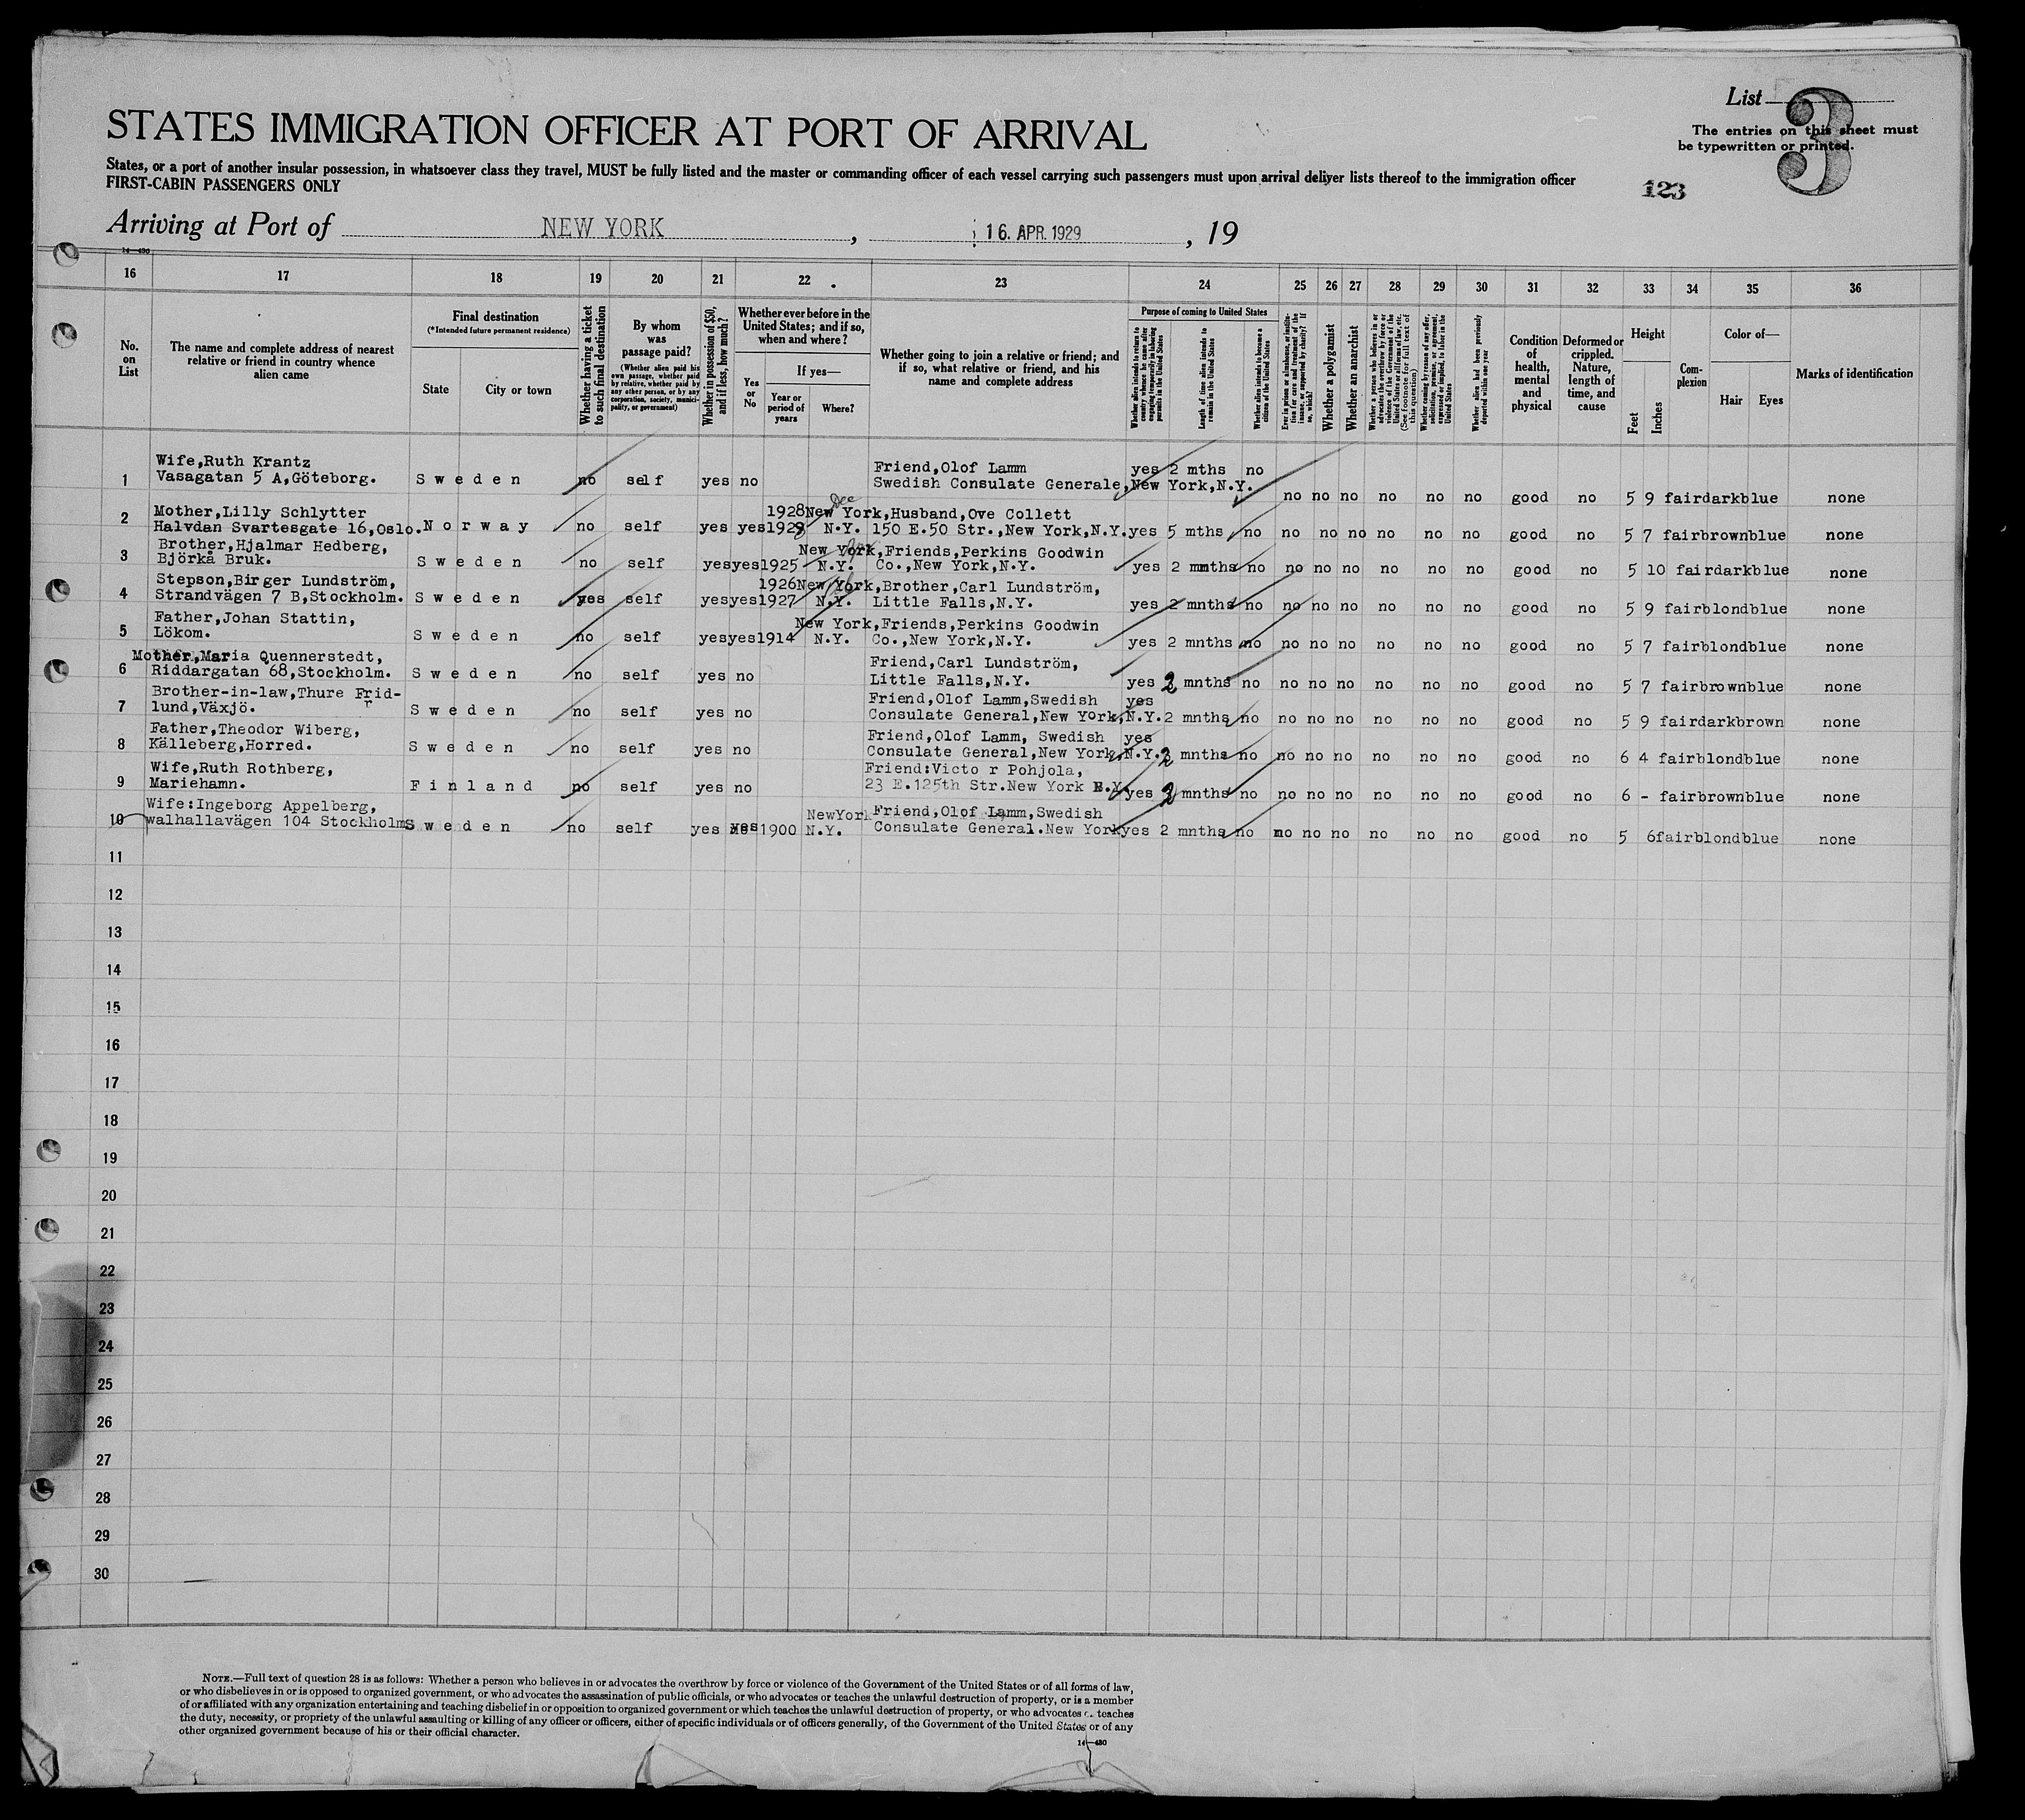 List 3
The entries on this sheet must
be typewritten or printed.
STATES IMMIGRATION OFFICER AT PORT OF ARRIVAL
States, or a port of another insular possession, in whatsoever class they travel, MUST be fully listed and the master or commanding officer of each vessel carrying such passengers must upon arrival deliver lists thereof to the immigration officer
FIRST-CABIN PASSENGERS ONLY
123
Arriving at Port of NEW YORK, 16. APR. 1929, 19
14—430
16 17 18 19 20 21 22 23 24 25 26 27 28 29 30 31 32 33 34 35 36
No. on List
The name and complete address of nearest relative or friend in country whence alien came
Final destination
(*Intended future permanent residence)
State
City or town
Whether having a ticket to such final destination
By whom was passage paid?
(Whether alien paid his own passage, whether paid by relative, whether paid by any other person, or by any corporation, society, municipality, or government)
Whether in possession of $50, and if less, how much?
Whether ever before in the United States; and if so, when and where?
Yes or No
If yes—
Year or period of years
Where?
Whether going to join a relative or friend; and if so, what relative or friend, and his name and complete address
Purpose of coming to United States
Whether alien intends to return to country whence he came after engaging temporarily in laboring pursuits in the United States
Length of time alien intends to remain in the United States
Whether alien intends to become a citizen of the United States
Ever in prison or almshouse, or institution for care and treatment of the insane, or supported by charity? If so, which?
Whether a polygamist
Whether an anarchist
Whether a person who believes in or advocates the overthrow by force or violence of the Government of the United States or all forms of law, etc. (See footnote for full text of this question)
Whether coming by reason of any offer, solicitation, promise, or agreement, expressed or implied, to labor in the United States
Whether alien had been previously deported within one year
Condition of health, mental and physical
Deformed or crippled. Nature, length of time, and cause
Height
Feet
Inches
Complexion
Color of—
Hair
Eyes
Marks of identification
Wife,Ruth Krantz Friend,Olof Lamm yes 2 mths no
1 Vasagatan 5 A,Göteborg. Sweden no self yes no Swedish Consulate Generale,New York,N.Y. no no no no no no good no 5 9 fair dark blue none
Mother,Lilly Schlytter 1928 Dec New York,Husband,Ove Collett
2 Halvdan Svartesgate 16,Oslo. Norway no self yes yes 1928 N.Y. 150 E.50 Str.,New York,N.Y. yes 5 mths no no no no no no no good no 5 7 fair brown blue none
Brother,Hjalmar Hedberg, New York,Friends,Perkins Goodwin
3 Björkå Bruk. Sweden no self yes yes 1925 N.Y. Co.,New York,N.Y. yes 2 mnths no no no no no no no good no 5 10 fair dark blue none
Stepson,Birger Lundström, 1926 New York,Brother,Carl Lundström,
4 Strandvägen 7 B,Stockholm. Sweden yes self yes yes 1927 N.Y. Little Falls,N.Y. yes 2 mnths no no no no no no no good no 5 9 fair blond blue none
Father,Johan Stattin, New York,Friends,Perkins Goodwin
5 Lökom. Sweden no self yes yes 1914 N.Y. Co.,New York,N.Y. yes 2 mnths no no no no no no no good no 5 7 fair blond blue none
Mother,Maria Quennerstedt, Friend,Carl Lundström,
6 Riddargatan 68,Stockholm. Sweden no self yes no Little Falls,N.Y. yes 2 mnths no no no no no no no good no 5 7 fair brown blue none
Brother-in-law,Thure Frid- Friend,Olof Lamm,Swedish yes
7 lund,Växjö. Sweden no self yes no Consulate General,New York,N.Y. 2 mnths no no no no no no no good no 5 9 fair dark brown none
Father,Theodor Wiberg, Friend,Olof Lamm, Swedish yes
8 Källeberg,Horred. Sweden no self yes no Consulate General,New York,N.Y. 2 mnths no no no no no no no good no 6 4 fair blond blue none
Wife,Ruth Rothberg, Friend:Victor Pohjola,
9 Mariehamn. Finland no self yes no 23 E.125th Str.New York N.Y. yes 2 mnths no no no no no no no good no 6 - fair brown blue none
Wife:Ingeborg Appelberg, NewYork Friend,Olof Lamm,Swedish
10 walhallavägen 104 Stockholm Sweden no self yes yes 1900 N.Y. Consulate General.New York yes 2 mnths no no no no no no no good no 5 6 fair blond blue none
11
12
13
14
15
16
17
18
19
20
21
22
23
24
25
26
27
28
29
30
NOTE.—Full text of question 28 is as follows: Whether a person who believes in or advocates the overthrow by force or violence of the Government of the United States or of all forms of law,
or who disbelieves in or is opposed to organized government, or who advocates the assassination of public officials, or who advocates or teaches the unlawful destruction of property, or is a member
of or affiliated with any organization entertaining and teaching disbelief in or opposition to organized government or which teaches the unlawful destruction of property, or who advocates or teaches
the duty, necessity, or propriety of the unlawful assaulting or killing of any officer or officers, either of specific individuals or of officers generally, of the Government of the United States or of any
other organized government because of his or their official character.
14—430